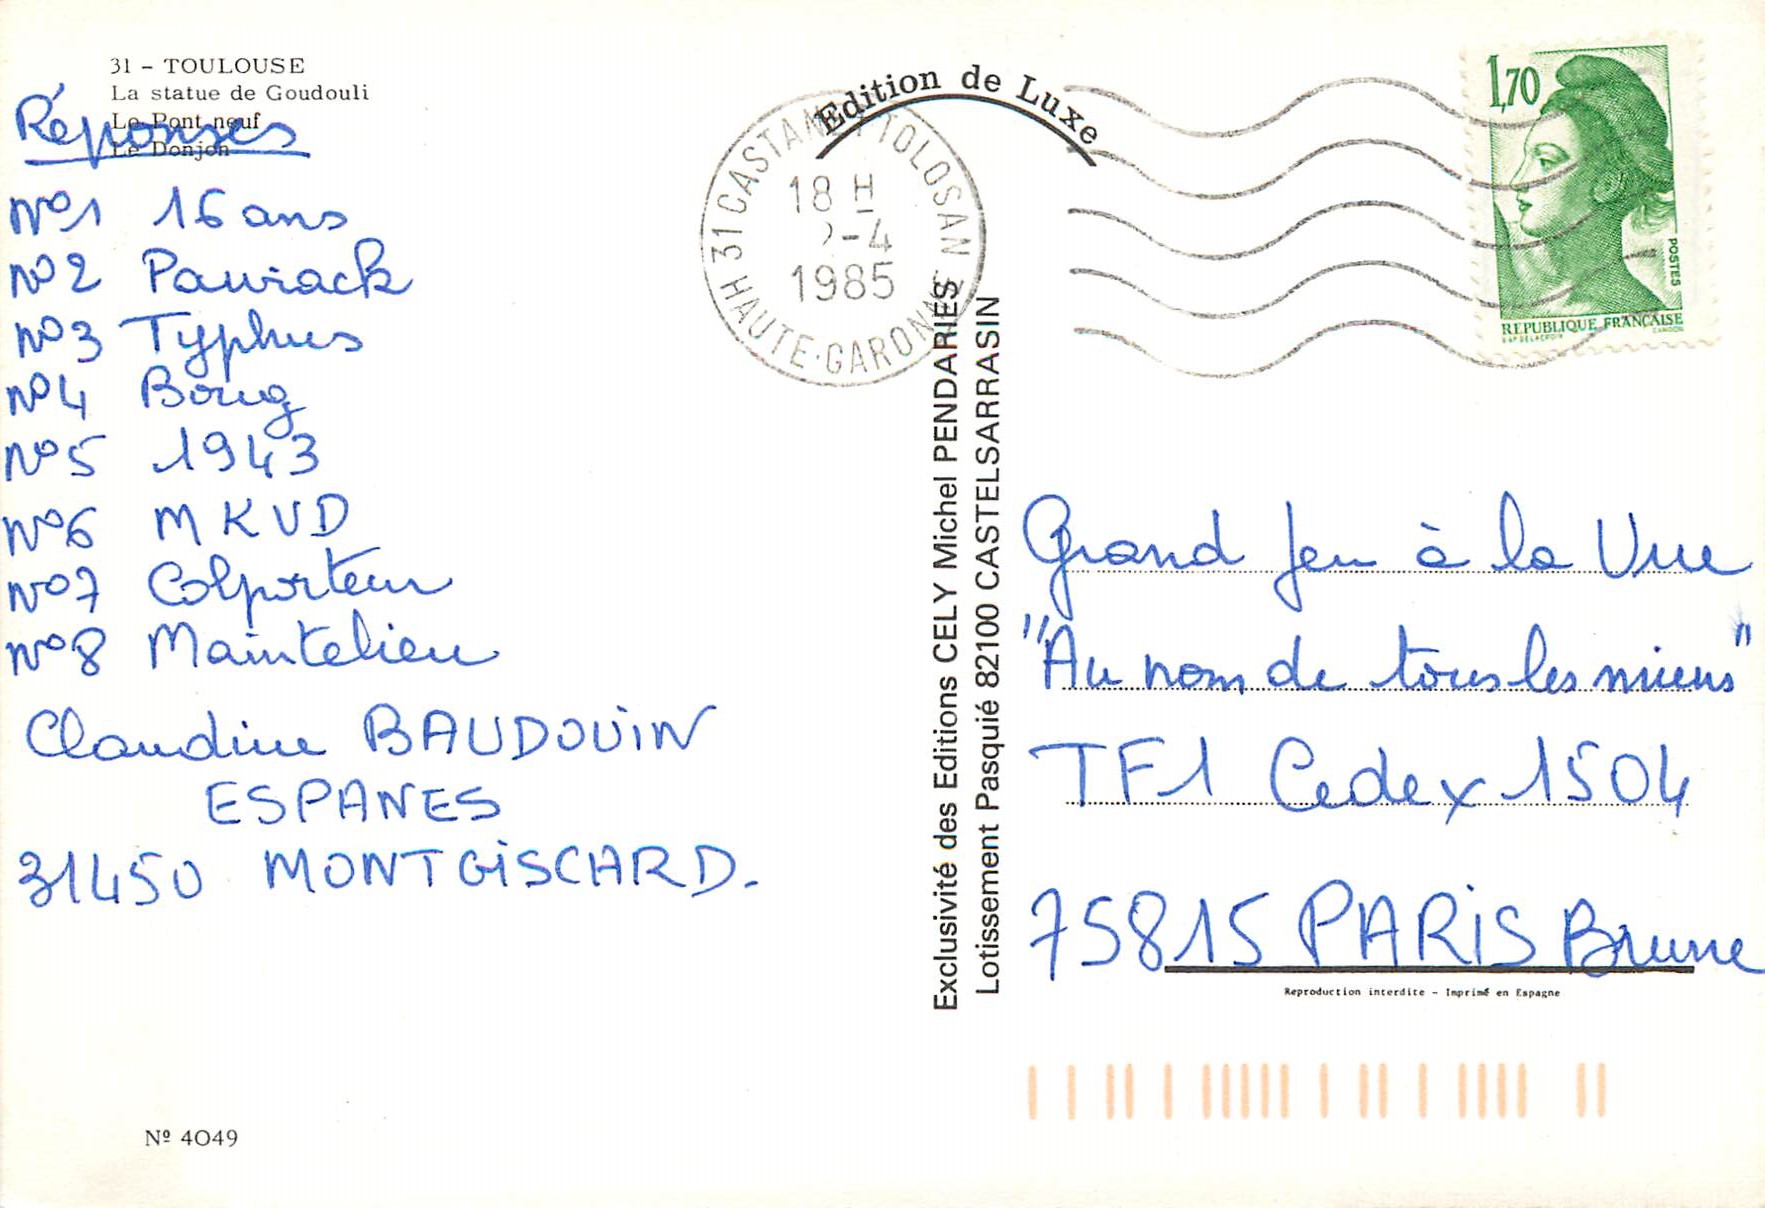 31 - TOULOUSE
La statue de Goudouli
Le Pont neuf
Le Donjon
Réponses
N°1 16 ans
N°2 Pawiack
N°3 Typhus
N°4 Boug
N°5 1943
N°6 MKVD
N°7 Colporteur
N°8 Maintelieu
Claudine BAUDOUIN
ESPANES
31450 MONTGISCARD.
Nº 4049
Edition de Luxe
31 CASTANET TOLOSAN
18 H
-4
1985
HAUTE-GARONNE
Exclusivité des Editions CELY Michel PENDARIES
Lotissement Pasquié 82100 CASTELSARRASIN
1,70
POSTES
REPUBLIQUE FRANÇAISE
Grand Jeu à la Vue
"Au nom de tous les miens"
TF1 Cedex 1504
75815 PARIS Brune
Reproduction interdite - Imprimé en Espagne